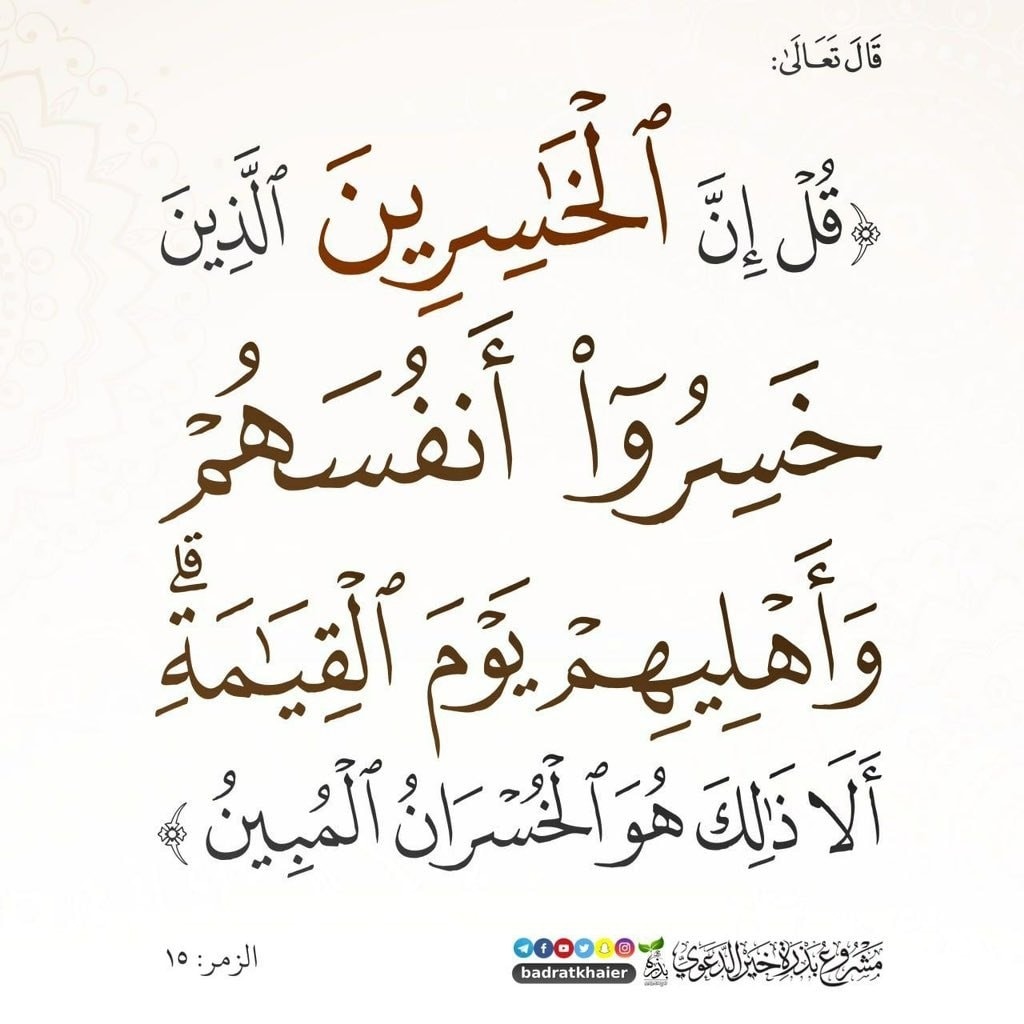 قَالَ تَعَالَىٰ:
﴿قُلْ إِنَّ ٱلْخَٰسِرِينَ ٱلَّذِينَ
خَسِرُوٓا۟ أَنفُسَهُمْ
وَأَهْلِيهِمْ يَوْمَ ٱلْقِيَٰمَةِۗ
أَلَا ذَٰلِكَ هُوَ ٱلْخُسْرَانُ ٱلْمُبِينُ﴾
مَشْرُوعُ بَذْرَةِ خَيْرٍ الدَّعَوِي
بذرة
badratkhaier
الزمر: ١٥